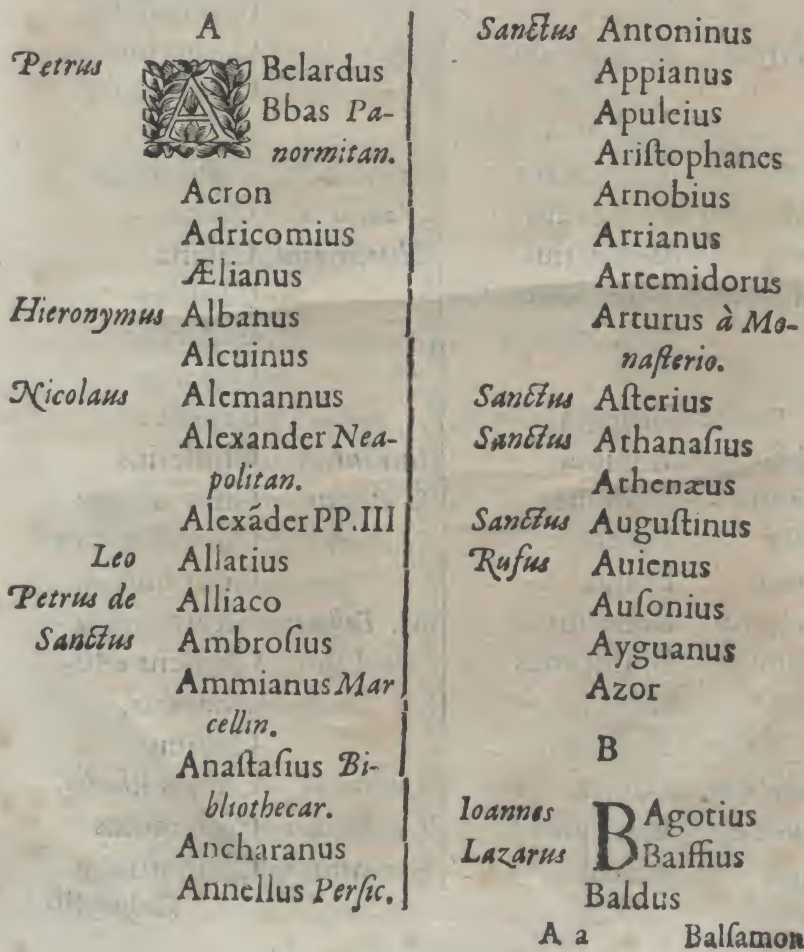 A
Petrus ABelardus
Bbas Pa-
normitan.
Acron
Adricomius
Ælianus
Hieronymus Albanus
Alcuinus
Nicolaus Alemannus
Alexander Nea-
politan.
Alexãder PP.III
Leo Allatius
Petrus de Alliaco
Sanctus Ambroſius
Ammianus Mar
cellin.
Anaſtaſius Bi-
bliothecar.
Ancharanus
Annellus Perſic.
Sanctus Antoninus
Appianus
Apuleius
Ariſtophanes
Arnobius
Arrianus
Artemidorus
Arturus à Mo-
naſterio.
Sanctus Aſterius
Sanctus Athanaſius
Athenæus
Sanctus Auguſtinus
Rufus Auienus
Auſonius
Ayguanus
Azor
B
Ioannes BAgotius
Lazarus Baiffius
Baldus
A a Balſamon